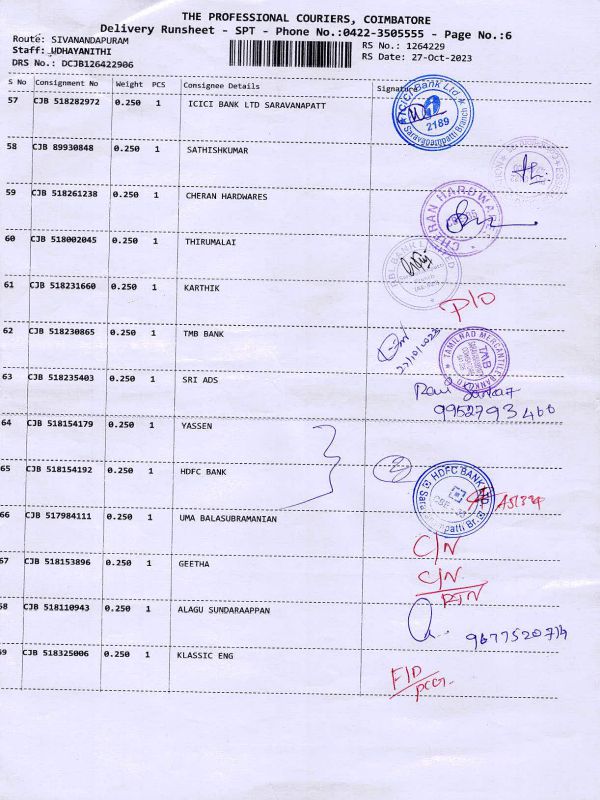 THE PROFESSIONAL COURIERS, COIMBATORE
Delivery Runsheet - SPT - Phone No.:0422-3505555 - Page No.:6
Route: SIVANANDAPURAM
RS No.: 1264229
Staff: UDHAYANITHI
RS Date: 27-Oct-2023
DRS No.: DCJB126422906
S No Consignment No Weight PCS Consignee Details Signature
57 CJB 518282972 0.250 1 ICICI BANK LTD SARAVANAPATT
ICICI Bank Ltd
2189
58 CJB 89930848 0.250 1 SATHISHKUMAR
59 CJB 518261238 0.250 1 CHERAN HARDWARES
CHERAN HARDWARES
60 CJB 518002045 0.250 1 THIRUMALAI
61 CJB 518231660 0.250 1 KARTHIK
P/O
62 CJB 518230865 0.250 1 TMB BANK
TAMILNAD MERCANTILE BANK
TMB
63 CJB 518235403 0.250 1 SRI ADS
9952793460
64 CJB 518154179 0.250 1 YASSEN
65 CJB 518154192 0.250 1 HDFC BANK
HDFC BANK
66 CJB 517984111 0.250 1 UMA BALASUBRAMANIAN
C/N
67 CJB 518153896 0.250 1 GEETHA
C/N
RTN
68 CJB 518110943 0.250 1 ALAGU SUNDARAAPPAN
69 CJB 518325006 0.250 1 KLASSIC ENG